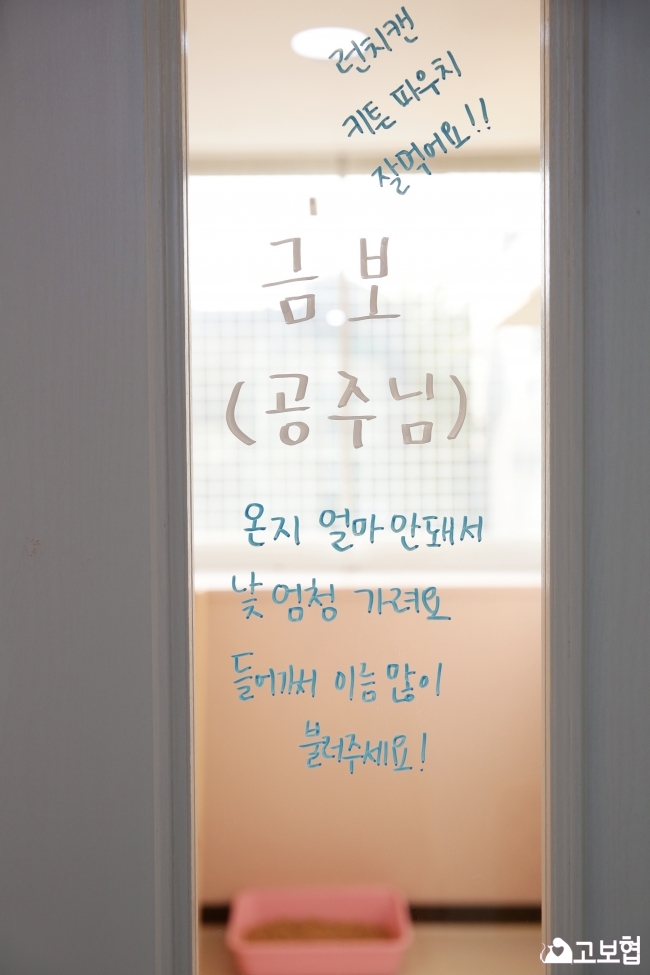 런치캔
키튼 파우치
잘먹어요!!
금보
(공주님)
온지 얼마 안돼서
낯 엄청 가려요
들어가서 이름 많이
불러주세요!
고보협